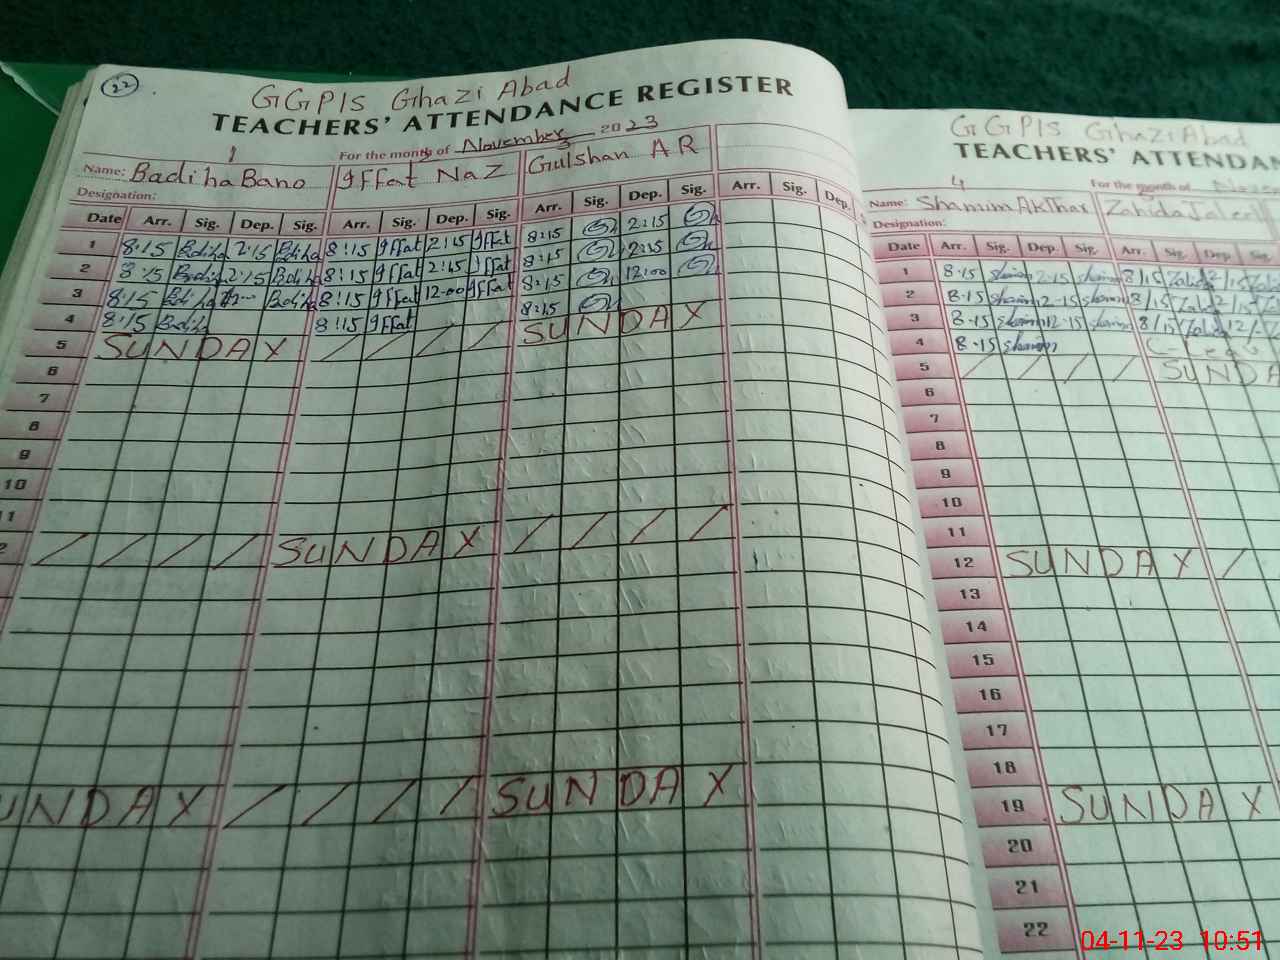 22
GGPIS Ghazi Abad
TEACHERS' ATTENDANCE REGISTER
For the month of November 2023
1
3
Name: Badiha Bano Iffat Naz Gulshan AR
Designation:
Date Arr. Sig. Dep. Sig. Arr. Sig. Dep. Sig. Arr. Sig. Dep. Sig. Arr. Sig. Dep.
1 8:15 Badiha 2:15 Badiha 8:15 Iffat 2:15 Iffat 8:15 2:15
2 8:15 Badiha 2:15 Badiha 8:15 Iffat 2:15 Iffat 8:15 2:15
3 8:15 Badiha Badiha 8:15 Iffat 12:00 Iffat 8:15 12:00
4 8:15 Badiha 8:15 Iffat 8:15
5 SUNDAY / / / / SUNDAY
6
7
8
9
10
11
2 / / / / SUNDAY / / / /
UNDAY / / / / SUNDAY
GGPIS Ghazi Abad
TEACHERS' ATTENDAN
4
For the month of
Name: Shamim Akhtar Zahida
Designation:
Date Arr. Sig. Dep. Sig. Arr. Sig. Dep Sig.
1 8.15 Shamim 2.15 Shamim 8/15
2 8.15 Shamim 2.15 Shamim 8/15
3 8.15 Shamim 12.15 Shamim 8/15
4 8.15 Shamim
5 / / / / SUNDA
6
7
8
9
10
11
12 SUNDAY /
13
14
15
16
17
18
19 SUNDAY
20
21
22
04-11-23 10:51